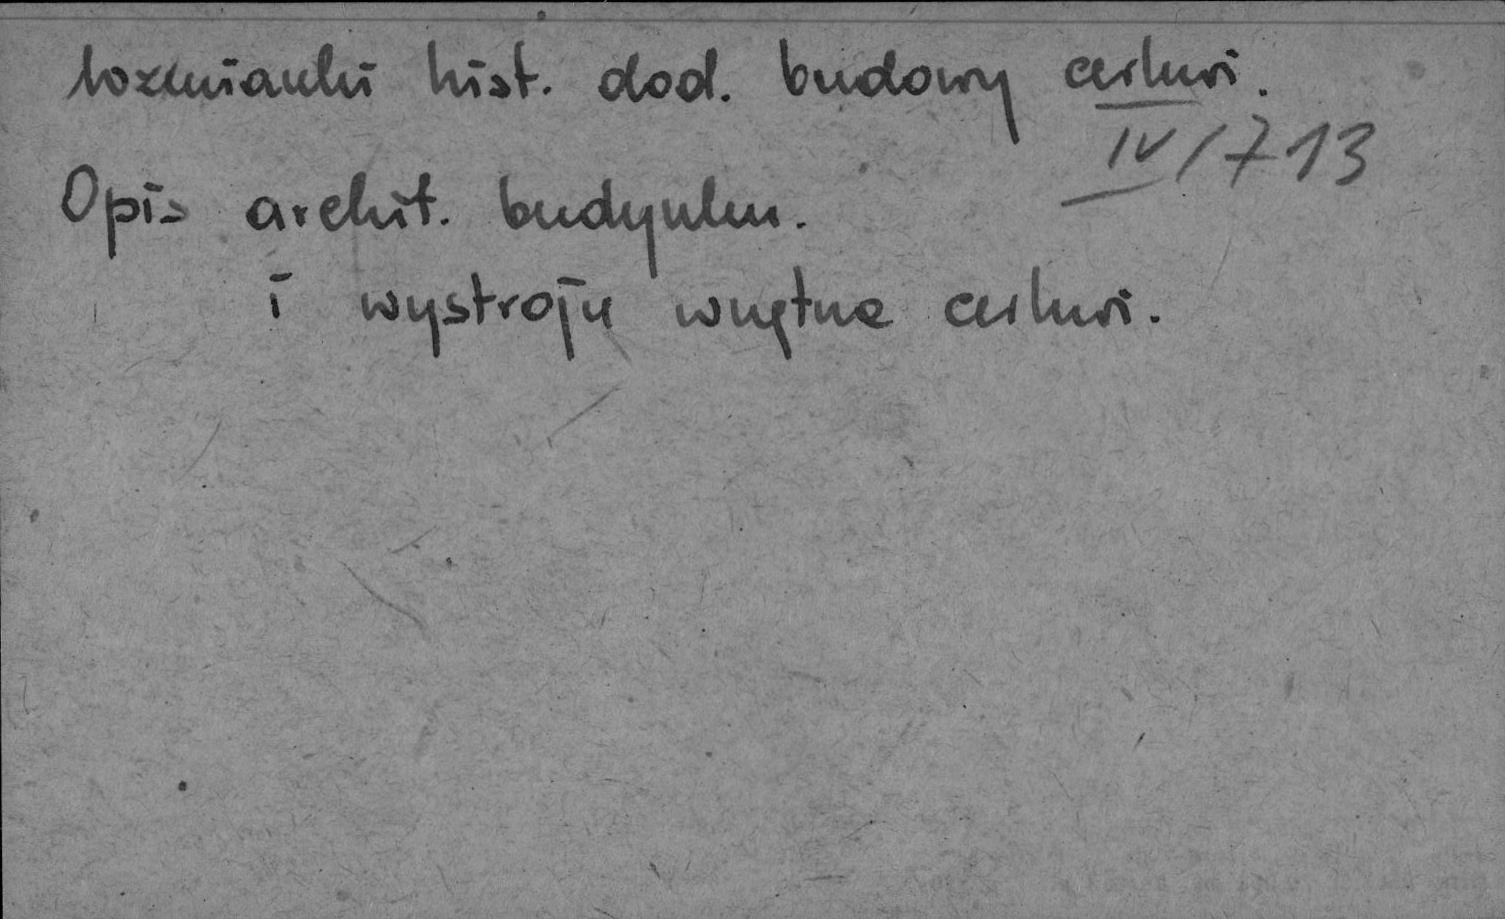 Wzmianki hist. dod. budowy cerkwi.
IV/713
Opis archit. budynku.
i wystroju wnętrza cerkwi.